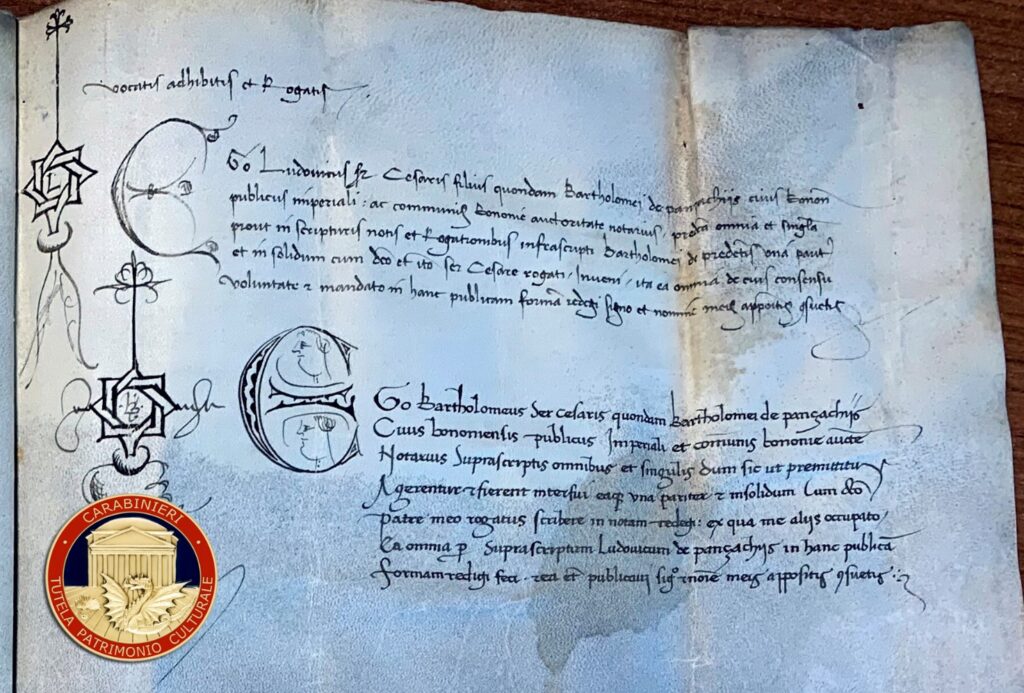 vocatis adhibitis et Rogatis
Ego Ludovicus Cesaris filius quondam Bartholomei de panzachijs civis bonon
publicus imperiali ac communis bononie auctoritate notarius predca omnia et singla
prout in scripturis notis et Rogationibus infrascripti Bartholomei de predictis una
et in solidum cum dco et ser Cesare rogati inveni ita ea omnia de eius consensu
voluntate et mandato in hanc publicam forma redegi signo et nomine meis appositis
Ego Bartholomeus Ser Cesaris quondam Bartholomei de panzachijs
Civis bononiensis publicus Imperiali et comunis bononie aucte
Notarius Suprascriptis omnibus et singulis dum sic ut premittitur
Agerentur et fierent interfui eaque una pariter et insolidum Cum dco
patre meo rogatus scribere in notam redegi: ex qua me alijs occupato
Ea omnia p Suprascriptum Ludovicum de panzachijs in hanc publica
formam redigi feci et publicavi noie meis appositis
CARABINIERI
TUTELA PATRIMONIO CULTURALE